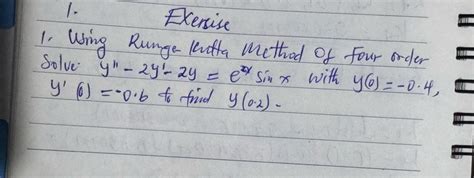 1. Exercise
1. Using Runge Kutta Method Of four order
Solve: y'' - 2y' - 2y = e^2x Sin x with y(0) = -0.4,
y'(0) = -0.6 to find y(0.2) -